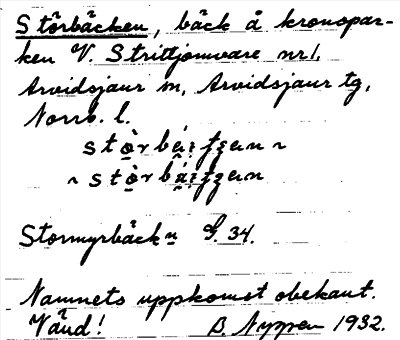 Storbäcken, bäck å kronopar-
ken V. Strittjomvare nr 1.
Arvidsjaur sn, Arvidsjaur tg,
Norrb. l.
Stormyrbäckn G. 34.
Namnets uppkomst obekant.
Vänd! B. Nyppen 1932.